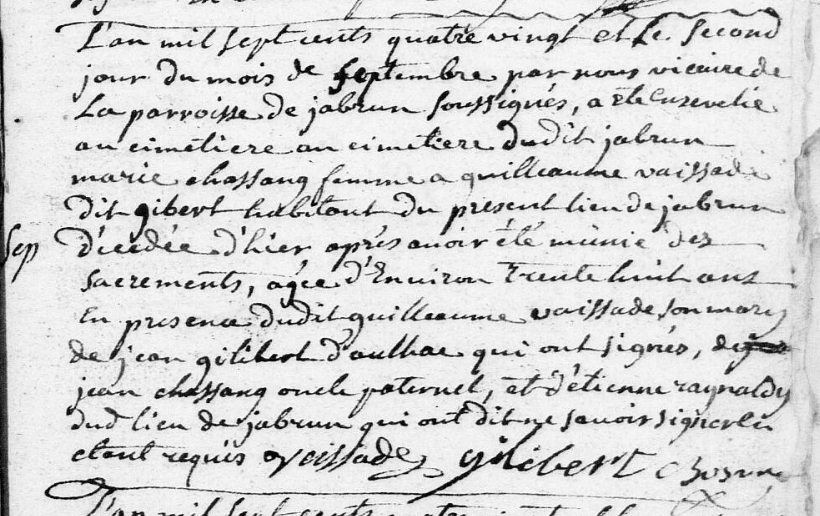 L'an mil sept cents quatre vingt et le second
jour du mois de septembre par nous vicaire de
La parroisse de jabrun soussignés, a été Ensevelie
au cimetiere au cimetiere dudit jabrun
marie chassang femme a guilleaume vaissade
dit gibert habitant du present lieu de jabrun
Sep décedée d'hier aprés avoir été munie des
sacrements, agée d'Environ trente huit ans
En presence dudit guilleaume vaissade son mary
de jean gilibert d'aulhac qui ont signés, de
jean chassang oncle paternel, et d'étienne raynaldy
dud lieu de jabrun qui ont dit ne savoir signer de ce
etant requis Vaissade gilibert
L'an mil sept cents